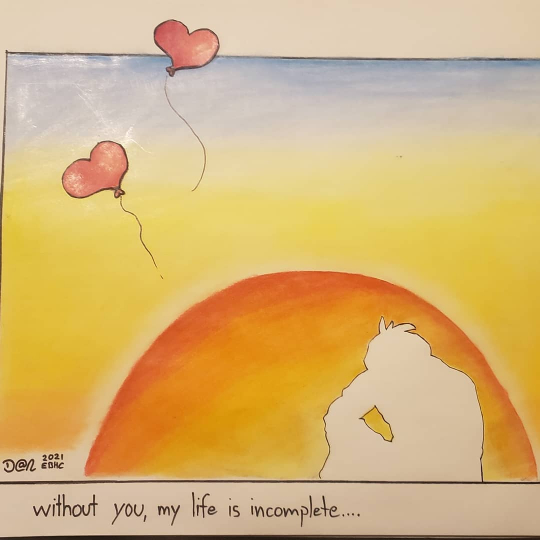 D@N 2021
EBHC
without you, my life is incomplete....